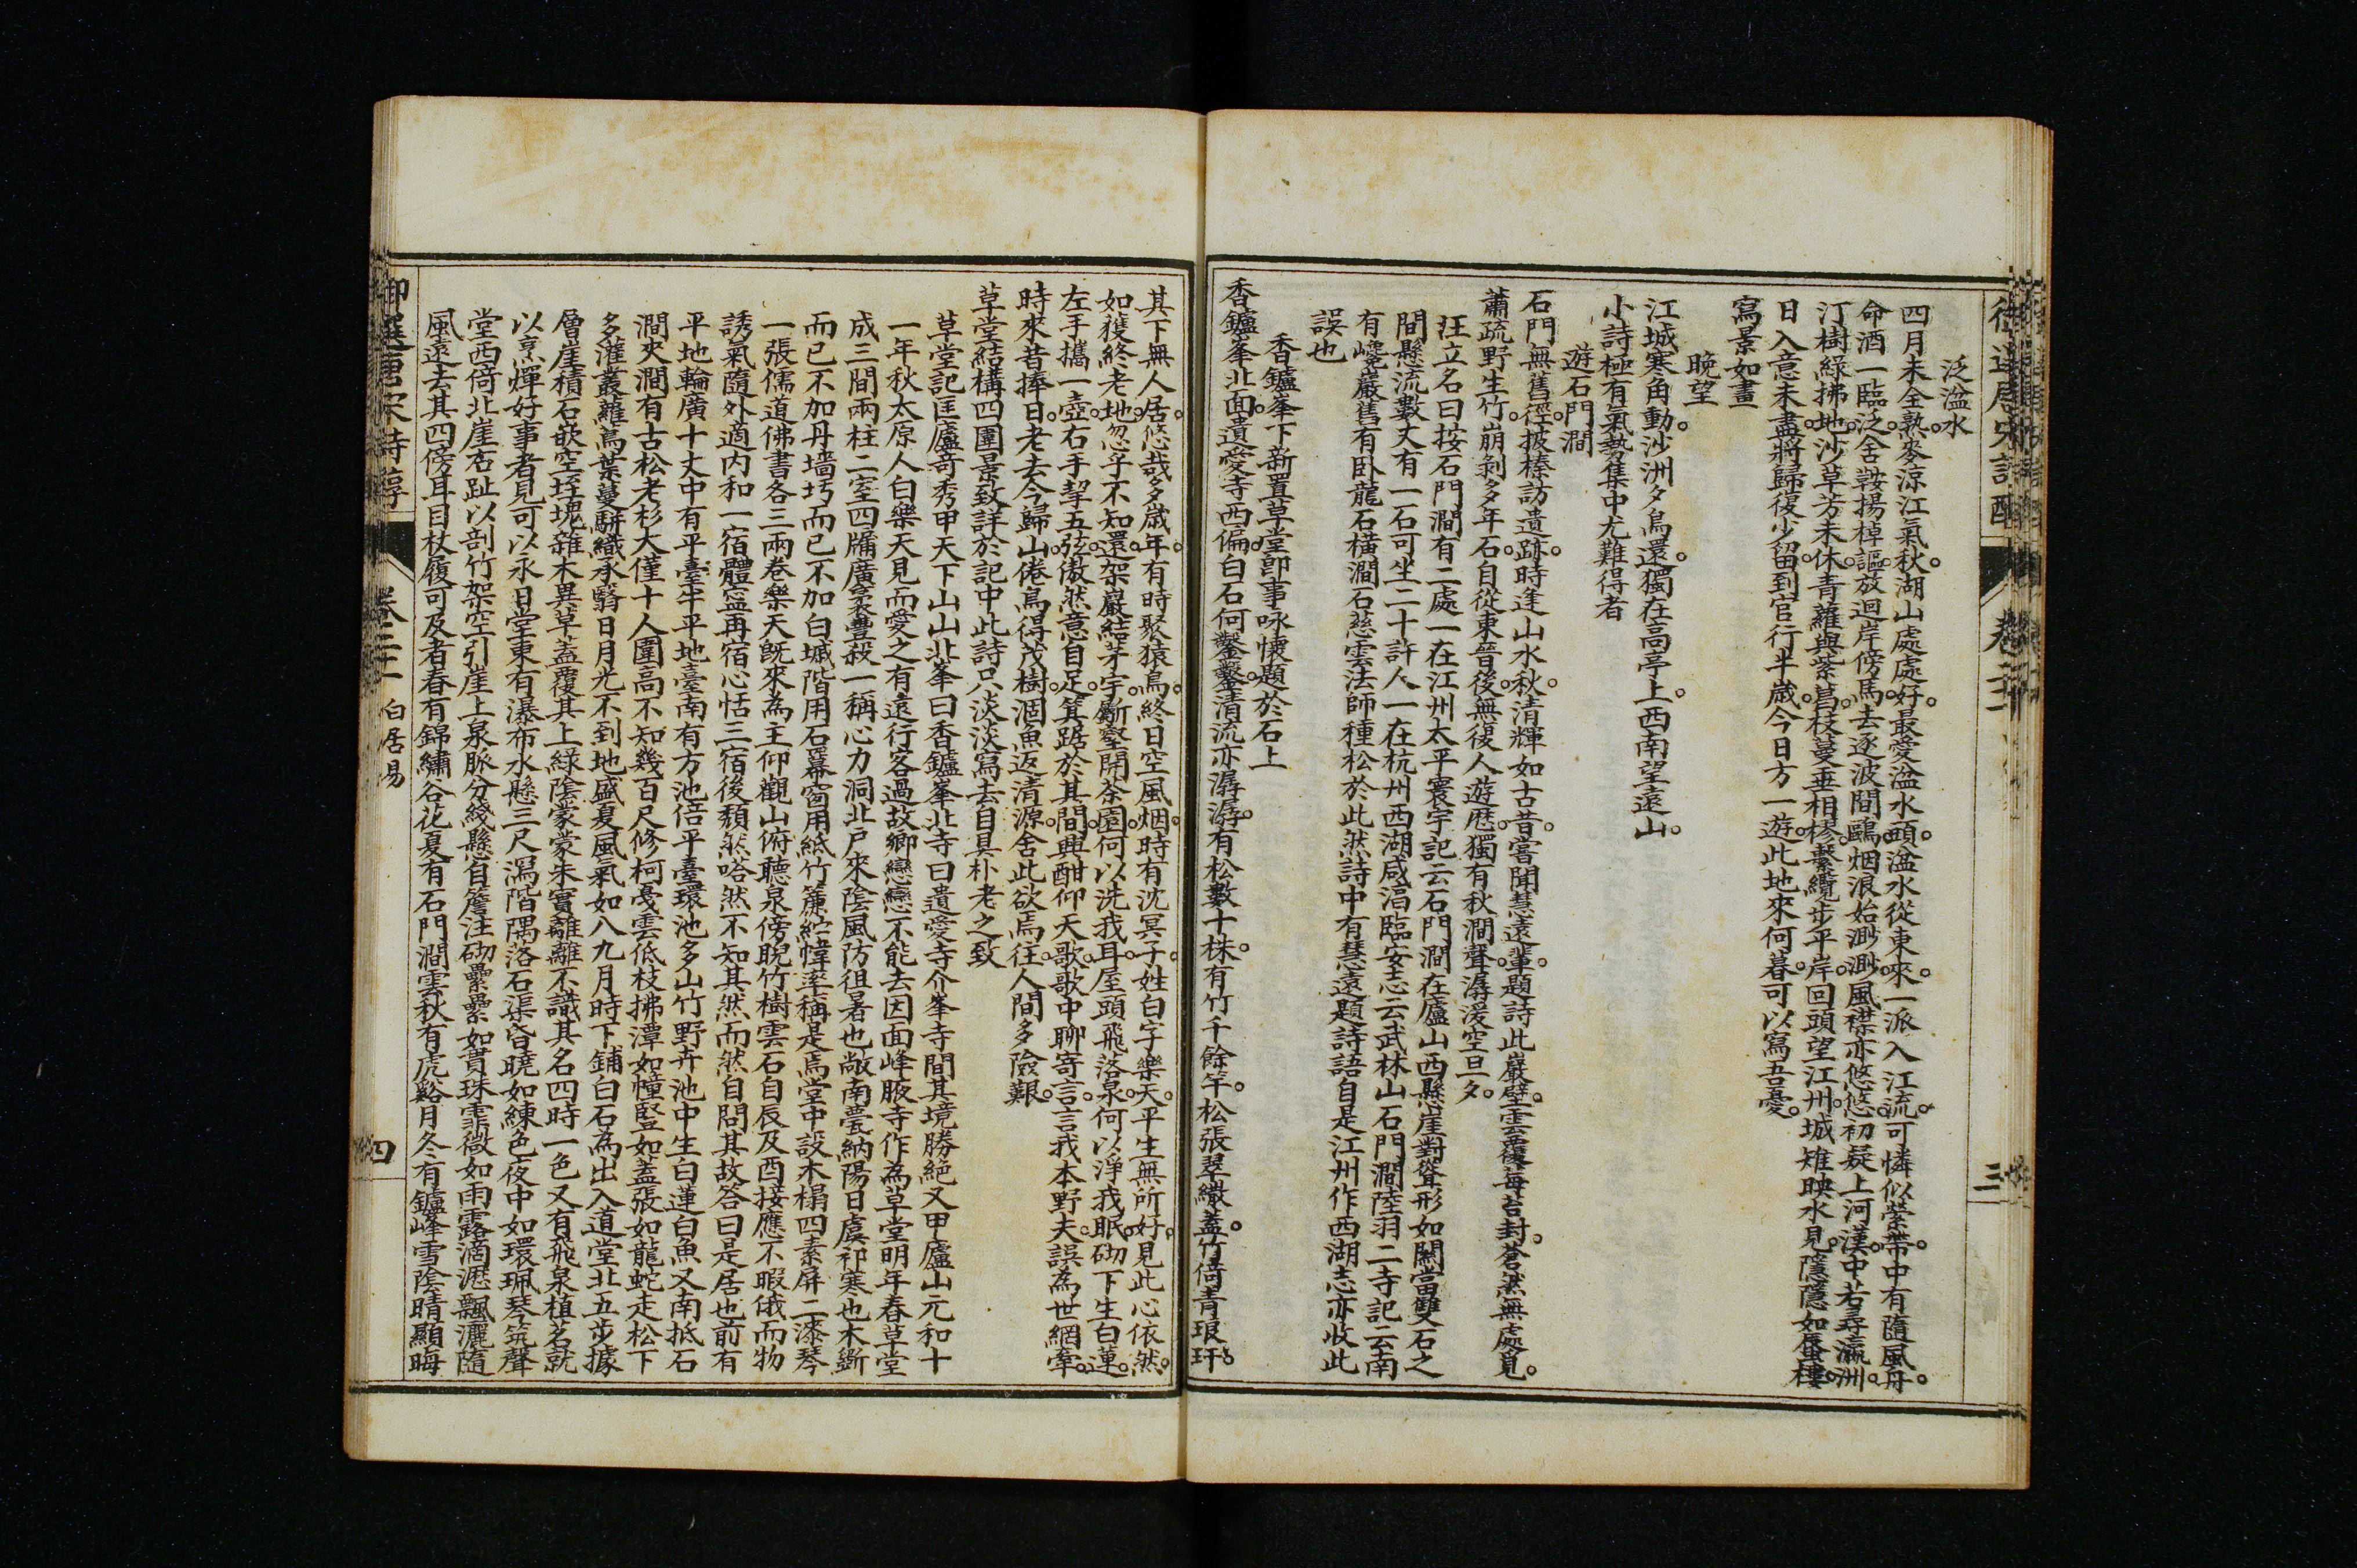 泛湓水
四月未全熟麥涼江氣秋湖山處處好最愛湓水頭湓水從東來一派入江流可憐似縈帶中有隨風舟
命酒一臨泛舍鞍揚棹謳放迴岸傍馬去逐波間鷗烟浪始渺渺風襟亦悠悠初疑上河漢中若尋瀛洲
汀樹綠拂地沙草芳未休青蘿與紫葛枝蔓垂相樛繫纜步平岸回頭望江州城雉映水見隱隱如蜃樓
日入意未盡將歸復少留到官行半歲今日方一遊此地來何暮可以寫吾憂
寫景如畫
晚望
江城寒角動沙洲夕鳥還獨在高亭上西南望遠山
小詩極有氣勢集中尤難得者
遊石門澗
石門無舊徑披榛訪遺跡時逢山水秋清輝如古昔嘗聞慧遠輩題詩此巖壁雲覆莓苔封蒼然無處覓
蕭疏野生竹崩剝多年石自從東晉後無復人遊歷獨有秋澗聲潺湲空旦夕
汪立名曰按石門澗有二處一在江州太平寰宇記云石門澗在廬山西懸崖對聳形如闕當雙石之
間懸流數丈有一石可坐二十許人一在杭州西湖咸淳臨安志云武林山石門澗陸羽二寺記云南
有巉巖舊有卧龍石橫澗石慈雲法師種松於此然詩中有慧遠題詩語自是江州作西湖志亦收此
誤也
香鑪峯下新置草堂卽事咏懷題於石上
香鑪峯北面遺愛寺西偏白石何鑿鑿清流亦潺潺有松數十株有竹千餘竿松張翠繖蓋竹倚青琅玕
卷二十
三
其下無人居悠哉多歲年有時聚猿鳥終日空風烟時有沈冥子姓白字樂天平生無所好見此心依然
如獲終老地忽乎不知還架巖結茅宇斸壑開茶園何以洗我耳屋頭飛落泉何以淨我眼砌下生白蓮
左手攜一壺右手挈五弦傲然意自足箕踞於其間興酣仰天歌歌中聊寄言言我本野夫誤為世網牽
時來昔捧日老去今歸山倦鳥得茂樹涸魚返清源舍此欲焉往人間多險艱
草堂結構四圍景致詳於記中此詩只淡淡寫去自具朴老之致
草堂記匡廬奇秀甲天下山山北峯曰香鑪峯北寺曰遺愛寺介峯寺間其境勝絕又甲廬山元和十
一年秋太原人白樂天見而愛之有遠行客過故鄉戀戀不能去因面峰腋寺作為草堂明年春草堂
成三間兩柱二室四牖廣袤豐殺一稱心力洞北戶來陰風防徂暑也敞南甍納陽日虞祁寒也木斲
而已不加丹墻圬而已不加白墄階用石羃窗用紙竹簾紵幃率稱是焉堂中設木榻四素屏二漆琴
一張儒道佛書各三兩卷樂天旣來為主仰觀山俯聽泉傍睨竹樹雲石自辰及酉接應不暇俄而物
誘氣隨外適內和一宿體寧再宿心恬三宿後頹然嗒然不知其然而然自問其故答曰是居也前有
平地輪廣十丈中有平臺半平地臺南有方池倍平臺環池多山竹野卉池中生白蓮白魚又南抵石
澗夾澗有古松老杉大僅十人圍高不知幾百尺修柯戞雲低枝拂潭如幢豎如蓋張如龍蛇走松下
多灌叢蘿蔦葉蔓駢織承翳日月光不到地盛夏風氣如八九月時下鋪白石為出入道堂北五步據
層崖積石嵌空垤塊雜木異草蓋覆其上綠陰蒙蒙朱實離離不識其名四時一色又有飛泉植茗就
以烹燀好事者見可以永日堂東有瀑布水懸三尺瀉階隅落石渠昏曉如練色夜中如環珮琴筑聲
堂西倚北崖右趾以剖竹架空引崖上泉脈分綫懸自簷注砌纍纍如貫珠霏微如雨露滴瀝飄灑隨
風遠去其四傍耳目杖履可及者春有錦繡谷花夏有石門澗雲秋有虎谿月冬有鑪峰雪陰晴顯晦
御選唐宋詩醇
卷二十
白居易
四